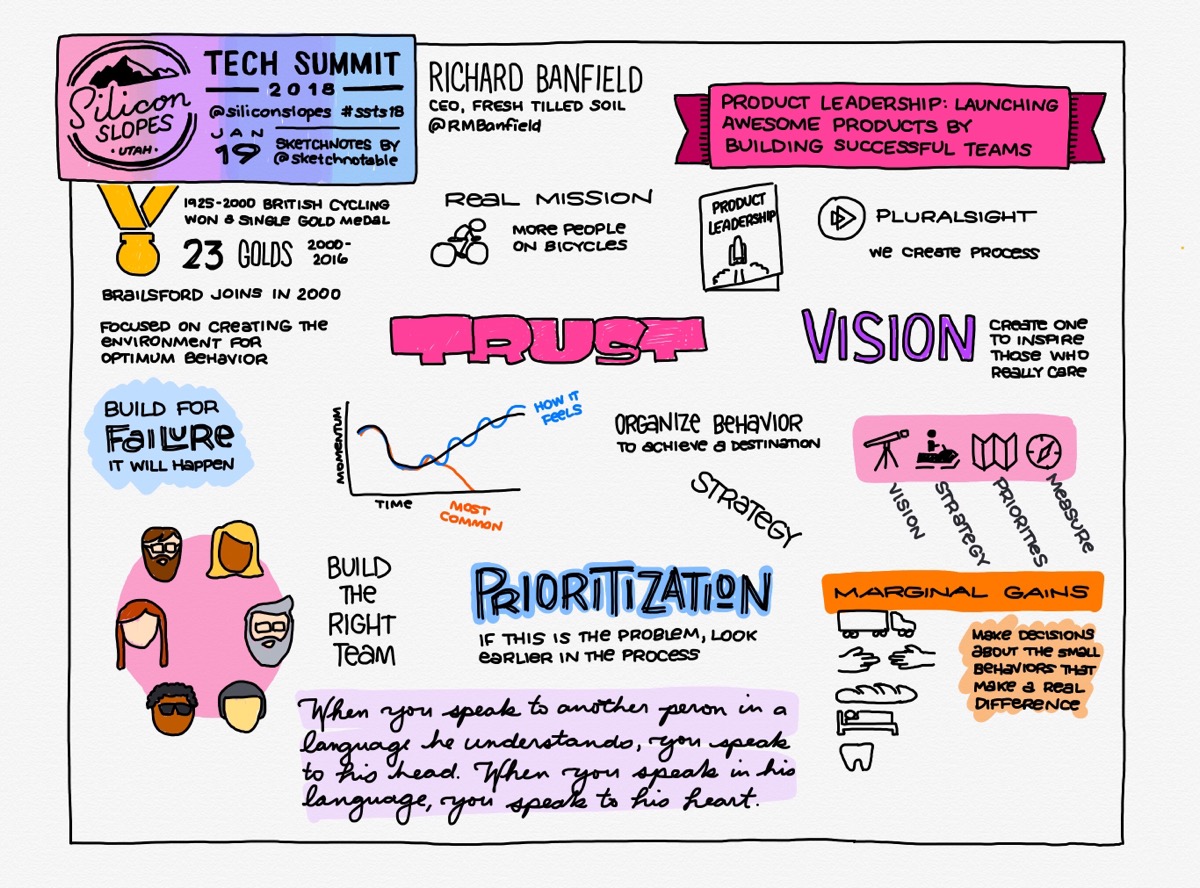 Silicon
SLOPES
• UTAH •
TECH SUMMIT
2018
@siliconslopes #ssts18
JAN
19
SKETCHNOTES BY
@sketchnotable
RICHARD BANFIELD
CEO, FRESH TILLED SOIL
@RMBanfield
PRODUCT LEADERSHIP: LAUNCHING
AWESOME PRODUCTS BY
BUILDING SUCCESSFUL TEAMS
1925-2000 BRITISH CYCLING
WON A SINGLE GOLD MEDAL
23 GOLDS 2000-
2016
BRAILSFORD JOINS IN 2000
FOCUSED ON CREATING THE
ENVIRONMENT FOR
OPTIMUM BEHAVIOR
REAL MISSION
MORE PEOPLE
ON BICYCLES
PRODUCT
LEADERSHIP
PLURALSIGHT
WE CREATE PROCESS
TRUST
VISION
CREATE ONE
TO INSPIRE
THOSE WHO
REALLY CARE
BUILD FOR
FAILURE
IT WILL HAPPEN
MOMENTUM
TIME
HOW IT
FEELS
MOST
COMMON
ORGANIZE BEHAVIOR
TO ACHIEVE A DESTINATION
STRATEGY
VISION
STRATEGY
PRIORITIES
MEASURE
BUILD
THE
RIGHT
TEAM
PRIORITIZATION
IF THIS IS THE PROBLEM, LOOK
EARLIER IN THE PROCESS
MARGINAL GAINS
MAKE DECISIONS
ABOUT THE SMALL
BEHAVIORS THAT
MAKE A REAL
DIFFERENCE
When you speak to another person in a
language he understands, you speak
to his head. When you speak in his
language, you speak to his heart.